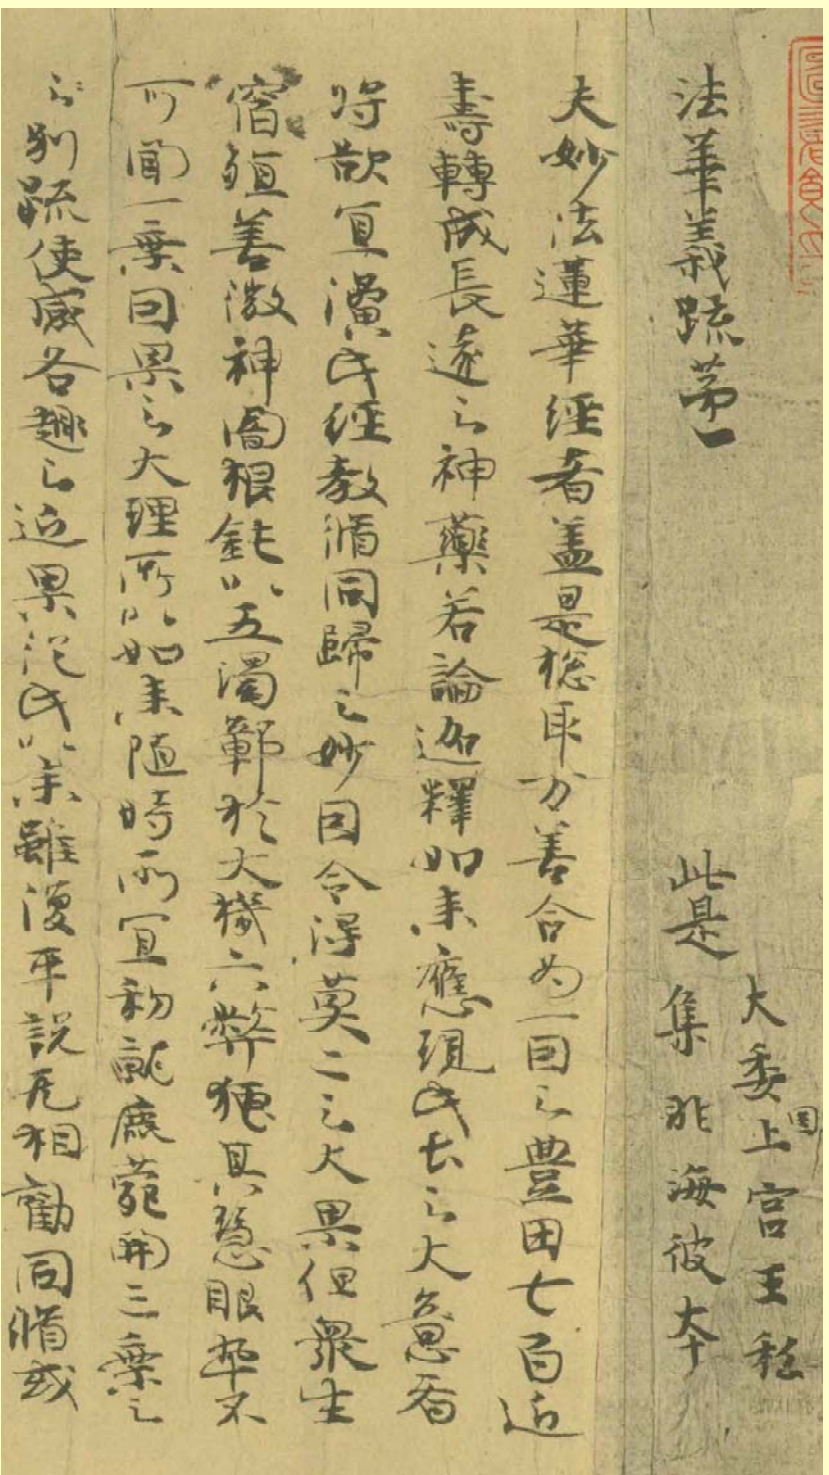 法華義疏第一
此是
大委国上宮王私
集非海彼本
夫妙法蓮華経者蓋是惣取万善合為一因之豊田七百近
壽轉成長遠之神藥若論迦釋如来應現此土之大意者
将欲宜演此経教脩同歸之妙因令得莫二之大果但衆生
宿殖善微神闇根鈍以五濁鄣於大機六弊掩其慧眼卒不
可聞一乗因果之大理所以如来随時所宜初就鹿苑開三乗之
之別疏使感各趣之近果従此以来雖復平説无相勧同脩或